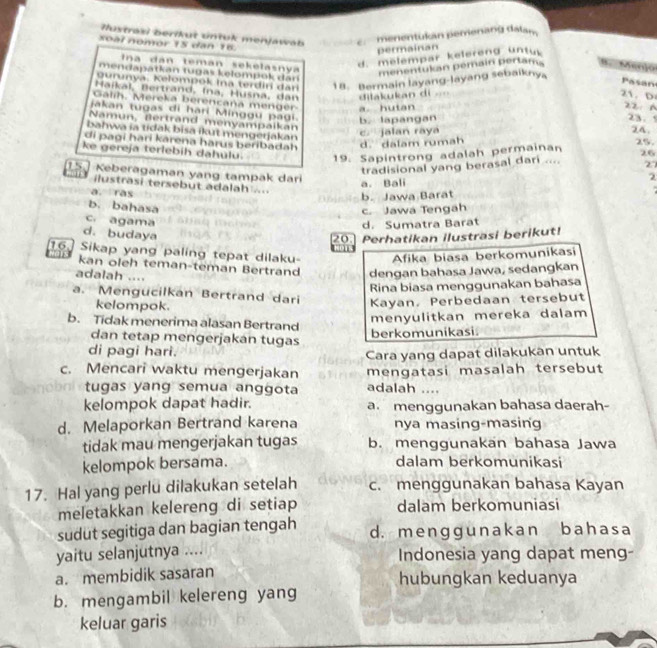 Ilustrasi berikut untuk menjawab
soal nomor 15 dan 16.
Ina dan teman sekelasnya
mendapatkan tugas kelompok dari
gurunya. Kelompok Ina terdiri dari
Haikal, Bertrand, Ina, Husna, dan
Galih. Mereka berencana menger-
jakan tugas di hari Minggu pagi.
Namun, Bertrand menyampaikan
bahwa ia tidak bisa ikut mengerjakan
di pagi hari karena harus beribadah
ke gereja terlebih dahulu.
15. Keberagaman yang tampak dari
ilustrasi tersebut adalah ....
a. ras
b. bahasa
c. agama
d. budaya
16. Sikap yang paling tepat dilaku-
HOTS kan oleh teman-teman Bertrand
adalah ....
a. Mengucilkan Bertrand dari
kelompok.
b. Tidak menerima alasan Bertrand
dan tetap mengerjakan tugas
di pagi hari.
c. Mencari waktu mengerjakan
tugas yang semua anggota
kelompok dapat hadir.
d. Melaporkan Bertrand karena
tidak mau mengerjakan tugas
kelompok bersama.
17. Hal yang perlu dilakukan setelah
meletakkan kelereng di setiap
sudut segitiga dan bagian tengah
yaitu selanjutnya ....
a. membidik sasaran
b. mengambil kelereng yang
keluar garis
c. menentukan pemenang dalam
permainan
d. melempar kelereng untuk
menentukan pemain pertama
18. Bermain layang-layang sebaiknya
dilakukan di ....
a. hutan
b. lapangan
c. jalan raya
d. dalam rumah
19. Sapintrong adalah permainan
tradisional yang berasal dari ....
a. Bali
b. Jawa Barat
c. Jawa Tengah
d. Sumatra Barat
20. Perhatikan ilustrasi berikut!
HOTS
Afika biasa berkomunikasi
dengan bahasa Jawa, sedangkan
Rina biasa menggunakan bahasa
Kayan. Perbedaan tersebut
menyulitkan mereka dalam
berkomunikasi.
Cara yang dapat dilakukan untuk
mengatasi masalah tersebut
adalah ....
a. menggunakan bahasa daerah-
nya masing-masing
b. menggunakan bahasa Jawa
dalam berkomunikasi
c. menggunakan bahasa Kayan
dalam berkomuniasi
d. menggunakan bahasa
Indonesia yang dapat meng-
hubungkan keduanya
21.
22.
23.
24.
25.
26